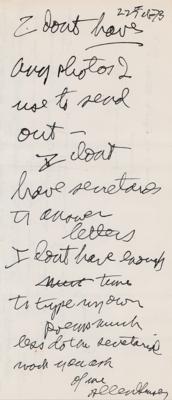 22 Feb 79
I dont have
any photos I
use to send
out —
I dont
have secretaries
to answer
letters
I dont have enough
time
to type my own
poems much
less do the secretarial
work you ask
of me
Allen Ginsberg